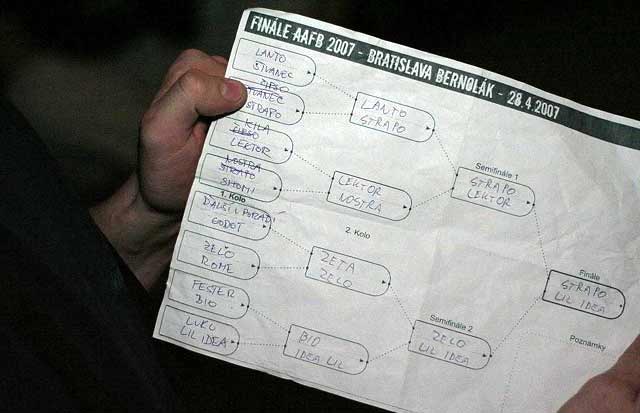 FINÁLE AAFB 2007 - BRATISLAVA BERNOLÁK - 28.4.2007
LANTO
ŠTVANEC
STRAPO
LEKTOR
SHOMI
1. Kolo
DALŠÍ V PORADÍ
GODOT
ZELO
ROME
FESTER
BIO
LUKU
LIL IDEA
LANTO
STRAPO
LEKTOR
KOSTRA
2. Kolo
ZETA
ZELO
BIO
IDEA LIL
Semifinále 1
STRAPO
LEKTOR
Semifinále 2
ZELO
LIL IDEA
Finále
STRAPO
LIL IDEA
Poznámky